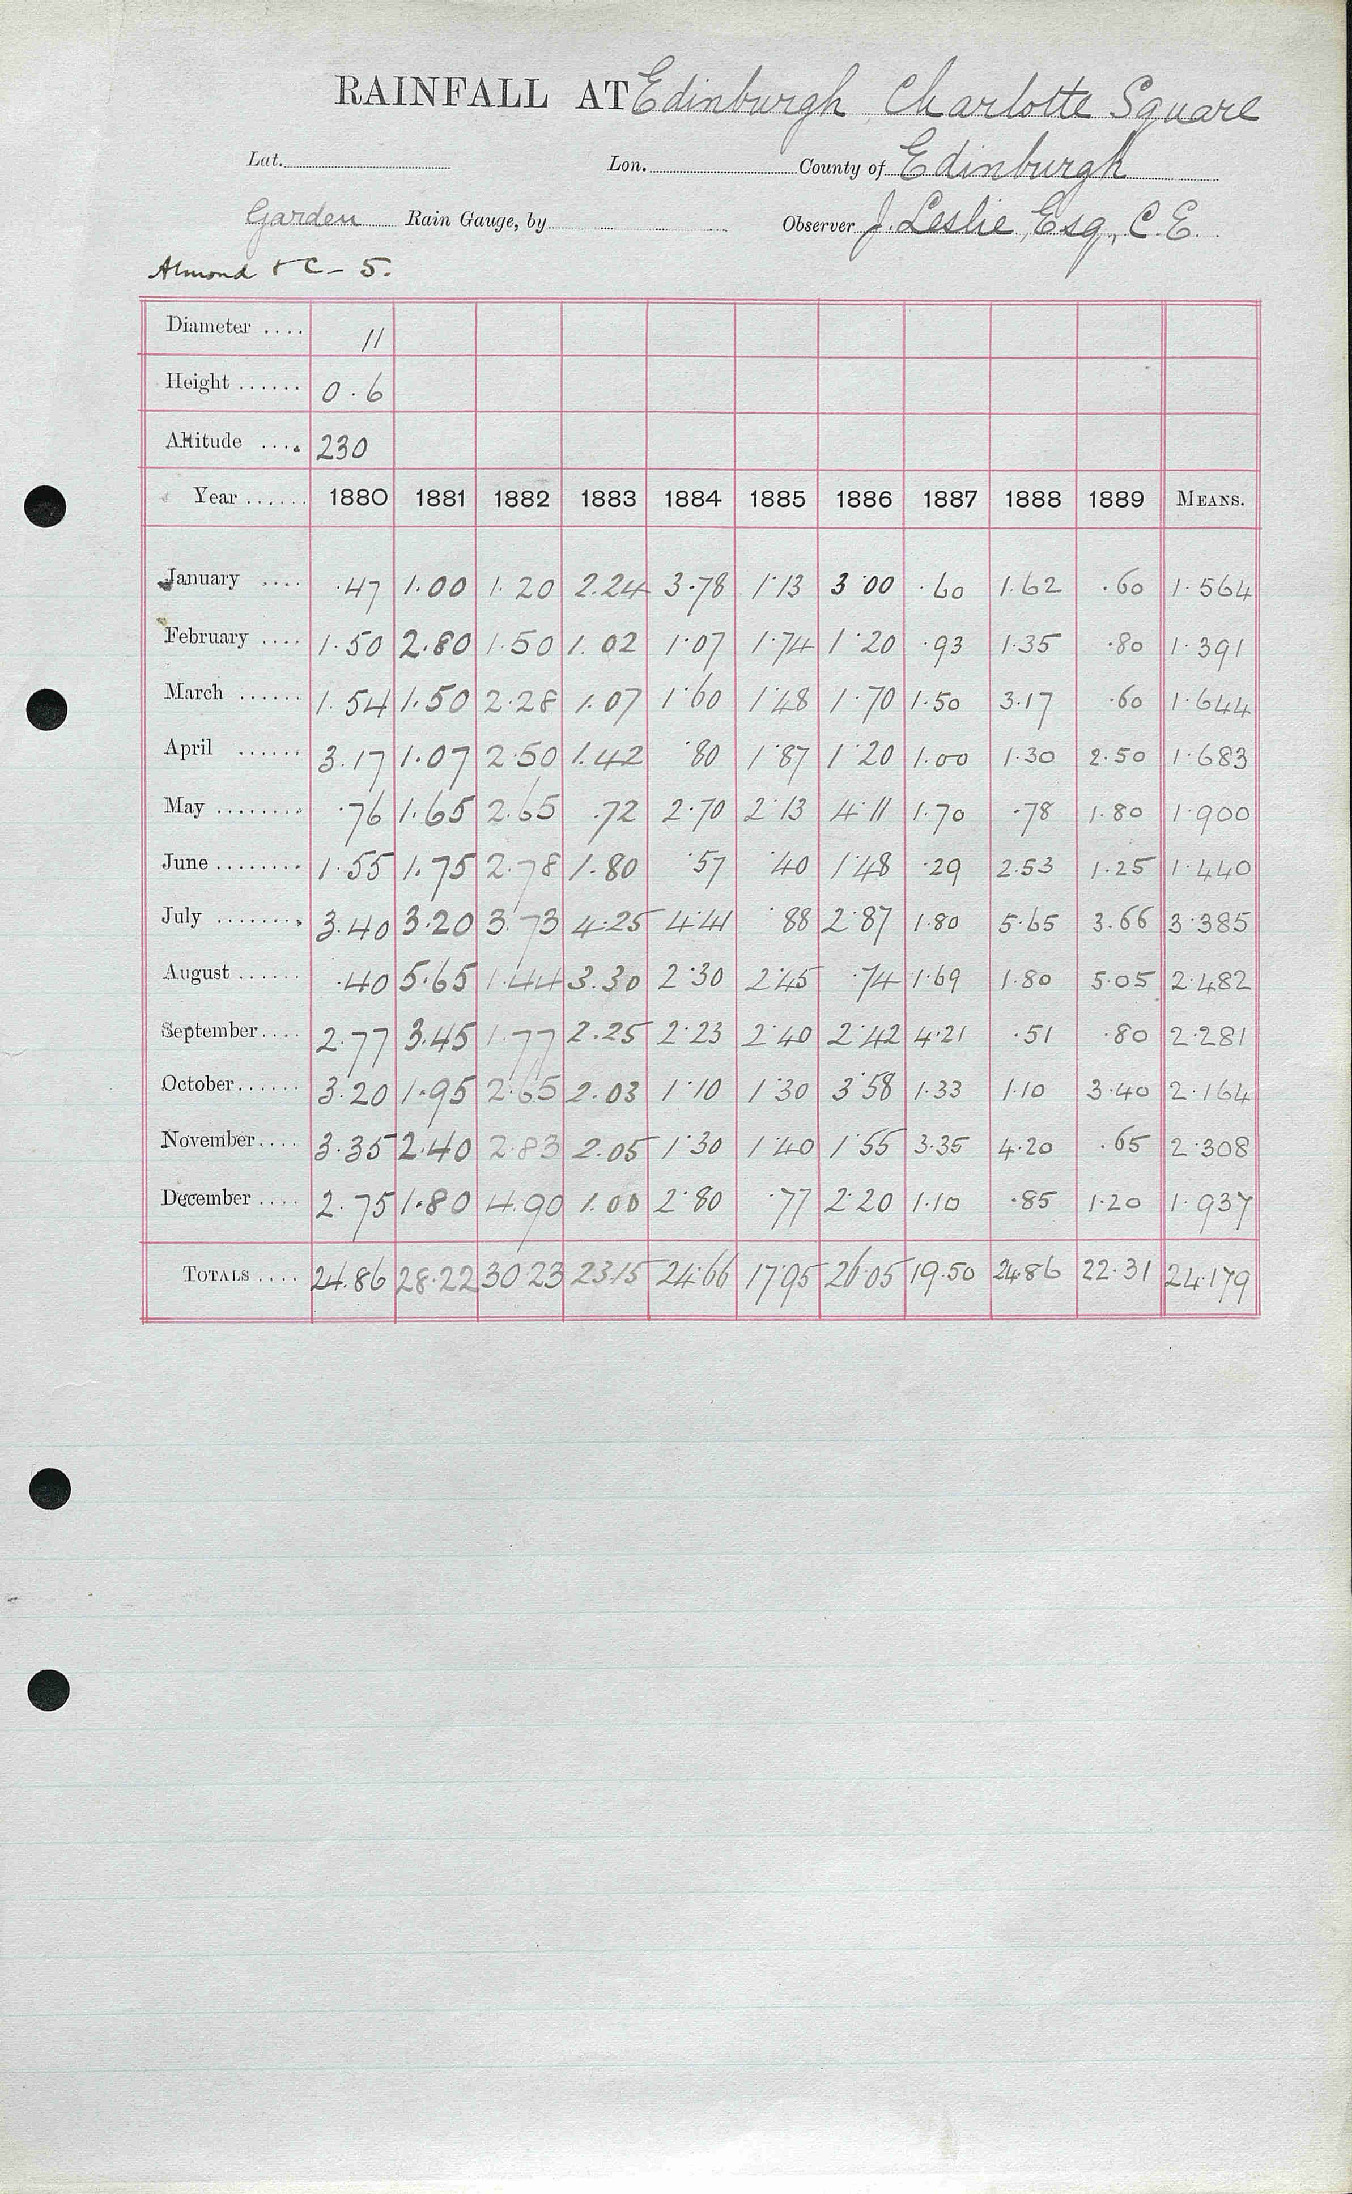 RAINFALL AT Edinburgh, Charlotte Square
Lat. Lon. County of Edinburgh
Garden Rain Gauge, by Observer J. Leslie, Esq., C.E.
Almond & C – 5.
Diameter .... 11
Height ...... 0.6
Altitude .... 230
Year ...... 1880 1881 1882 1883 1884 1885 1886 1887 1888 1889 MEANS.
January .... .47 1.00 1.20 2.24 3.78 1.13 3 00 .60 1.62 .60 1.564
February .... 1.50 2.80 1.50 1.02 1.07 1.74 1.20 .93 1.35 .80 1.391
March ...... 1.54 1.50 2.28 1.07 1.60 1.48 1.70 1.50 3.17 .60 1.644
April ...... 3.17 1.07 2.50 1.42 .80 1.87 1.20 1.00 1.30 2.50 1.683
May ........ .76 1.65 2.65 .72 2.70 2.13 4.11 1.70 .78 1.80 1.900
June ........ 1.55 1.75 2.78 1.80 .57 .40 1.48 .29 2.53 1.25 1.440
July ........ 3.40 3.20 3.73 4.25 4.41 .88 2.87 1.80 5.65 3.66 3.385
August ...... .40 5.65 1.44 3.30 2.30 2.45 .74 1.69 1.80 5.05 2.482
September .... 2.77 3.45 1.77 2.25 2.23 2.40 2.42 4.21 .51 .80 2.281
October ...... 3.20 1.95 2.65 2.03 1.10 1.30 3.58 1.33 1.10 3.40 2.164
November .... 3.35 2.40 2.83 2.05 1.30 1.40 1.55 3.35 4.20 .65 2.308
December .... 2.75 1.80 4.90 1.00 2.80 .77 2.20 1.10 .85 1.20 1.937
TOTALS .... 24.86 28.22 30.23 23.15 24.66 17.95 26.05 19.50 24.86 22.31 24.179